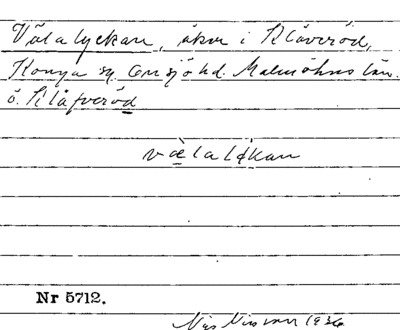 Välalyckan, åker i Klåveröd,
Konga sn. Onsjö hd. Malmöhus län.
ö. Klåfveröd
vælaløkan
Nr 5712.
Nils Nilsson 1936